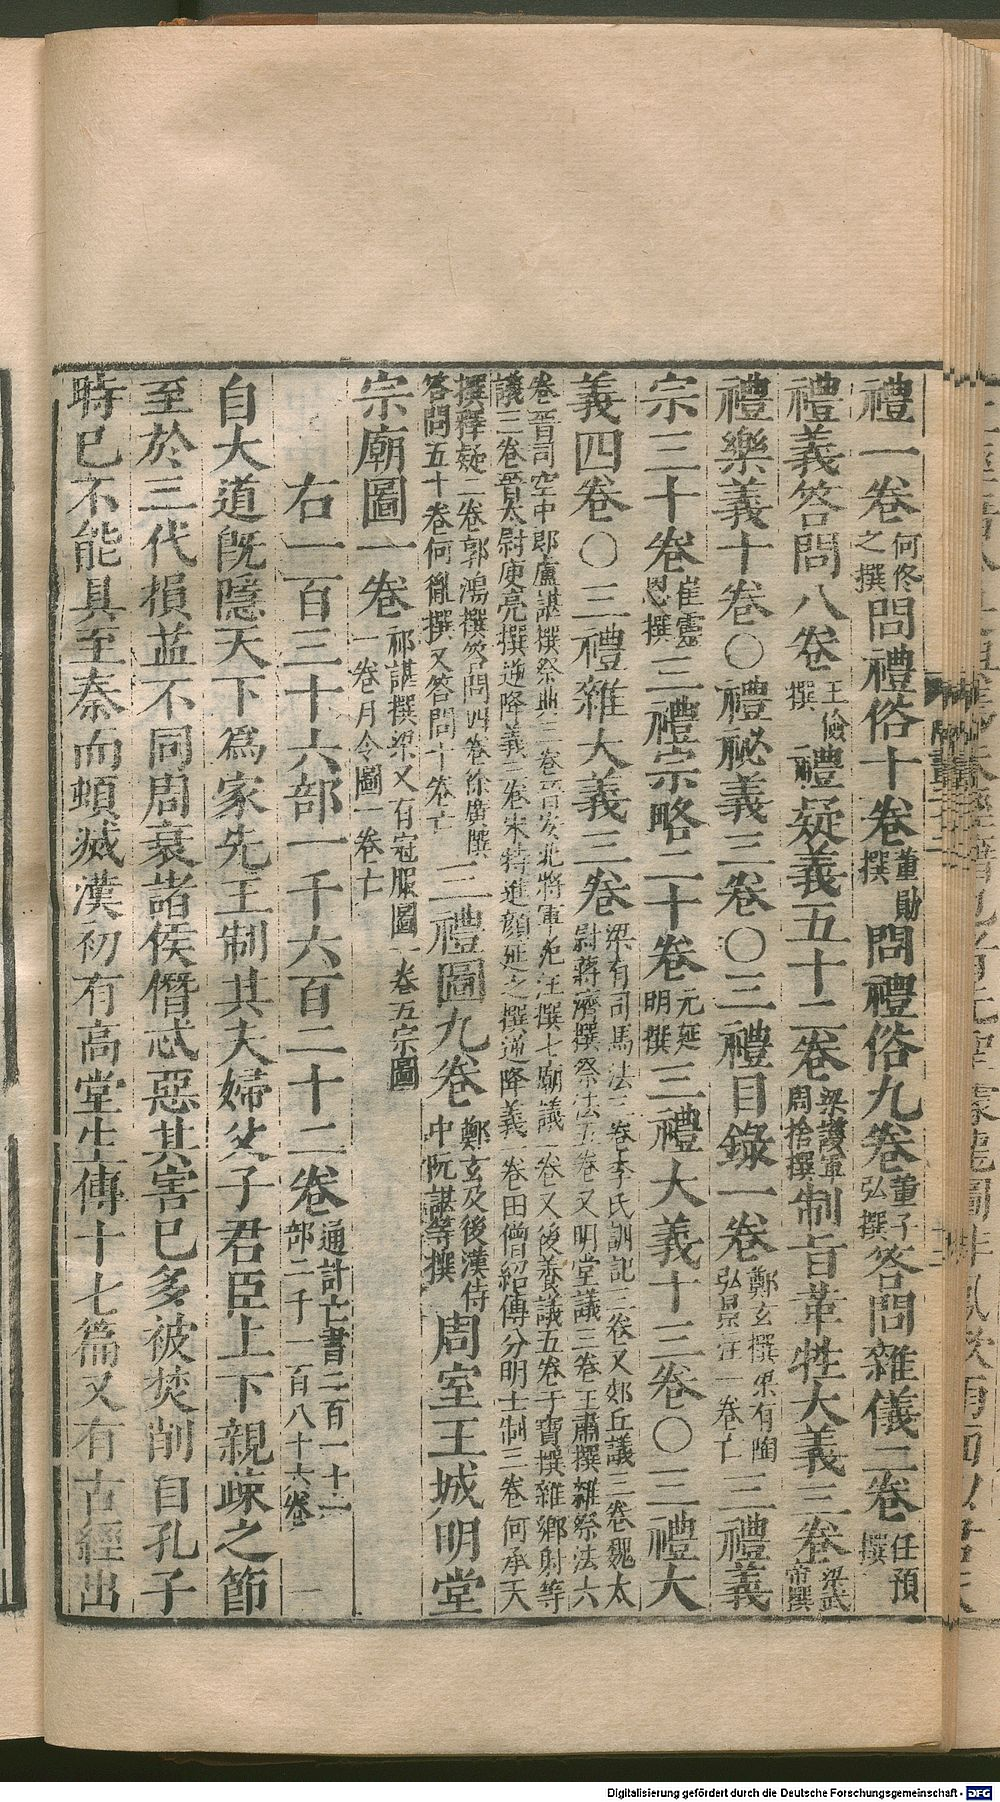 禮一卷何佟之撰問禮俗十卷董勛撰問禮俗九卷董子弘撰答問雜儀二卷任預撰
禮義答問八卷王儉撰禮疑義五十二卷梁護軍周捨撰制旨革牲大義三卷梁武帝撰
禮樂義十卷〇禮祕義三卷〇三禮目錄一卷鄭玄撰梁有陶弘景注一卷亡三禮義
宗三十卷崔靈恩撰三禮宗略二十卷元延明撰三禮大義十三卷〇三禮大
義四卷〇三禮雜大義三卷梁有司馬法三卷李氏訓記三卷又郊丘議三卷魏太尉蔣濟撰祭法五卷又明堂議三卷王肅撰雜祭法六
卷晉司空中郎盧諶撰祭典三卷晉安北將軍范汪撰七廟議一卷又後養議五卷于寶撰雜鄉射等
議三卷晉太尉庾亮撰逆降義三卷宋特進顏延之撰逆降義一卷田僧紹傳分明士制三卷何承天
撰釋疑二卷郭鴻撰答問四卷徐廣撰答問五十卷何胤撰又答問十卷亡三禮圖九卷鄭玄及後漢侍中阮諶等撰周室王城明堂
宗廟圖一卷祁諶撰梁又有冠服圖一卷五宗圖一卷月令圖一卷亡
右一百三十六部一千六百二十二卷通計亡書二百一十一部二千一百八十六卷
自大道既隱天下爲家先王制其夫婦父子君臣上下親疎之節
至於三代損益不同周衰諸侯僭忒惡其害已多被焚削自孔子
時已不能具至秦而頓滅漢初有高堂生傳十七篇又有古經出
Digitalisierung gefördert durch die Deutsche Forschungsgemeinschaft - DFG